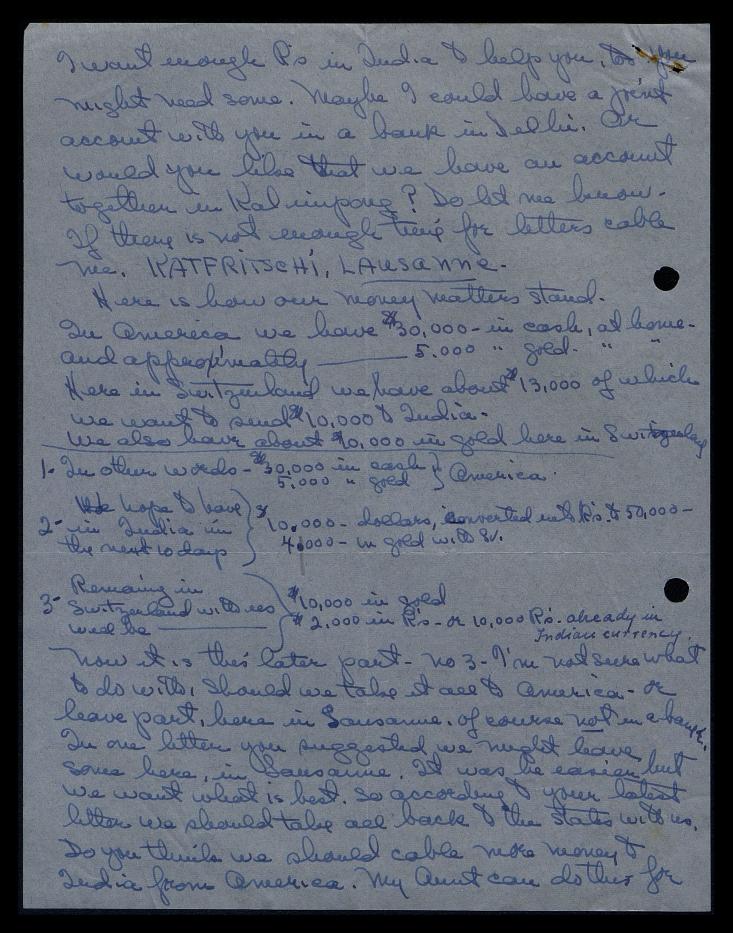 I want enough R's in India to help you, too you
might need some. Maybe I could have a joint
account with you in a bank in Delhi. Or
would you like that we have an account
together in Kalimpong? Do let me know.
If there is not enough time for letters cable
me. KATFRITSCHI, LAUSANNE.
Here is how our money matters stand.
In America we have $30,000- in cash, at home.
and approximately —— 5.000 " gold. " "
Here in Switzerland we have about $13,000 of which
we want to send $10,000 to India.
We also have about $10,000 in gold here in Switzerland
1- In other words - $30,000 in cash } America.
5.000 " gold
2- We hope to have
in India in
the next 10 days } $10.000- dollars, converted into R's. to 50,000-
4,000- in gold with Sv.
3- Remaining in
Switzerland with us
will be —— } $10,000 in gold
$2,000 in R's- or 10,000 R's. already in
Indian currency.
Now it is this later part- no 3- I'm not sure what
to do with, should we take it all to America - or
leave part, here in Lausanne. of course not in a bank.
In one letter you suggested we might leave
some here, in Lausanne. It was be easier but
we want what is best. So according to your latest
letter we should take all back to the States with us.
Do you think we should cable more money to
India from America. My Aunt can do this for